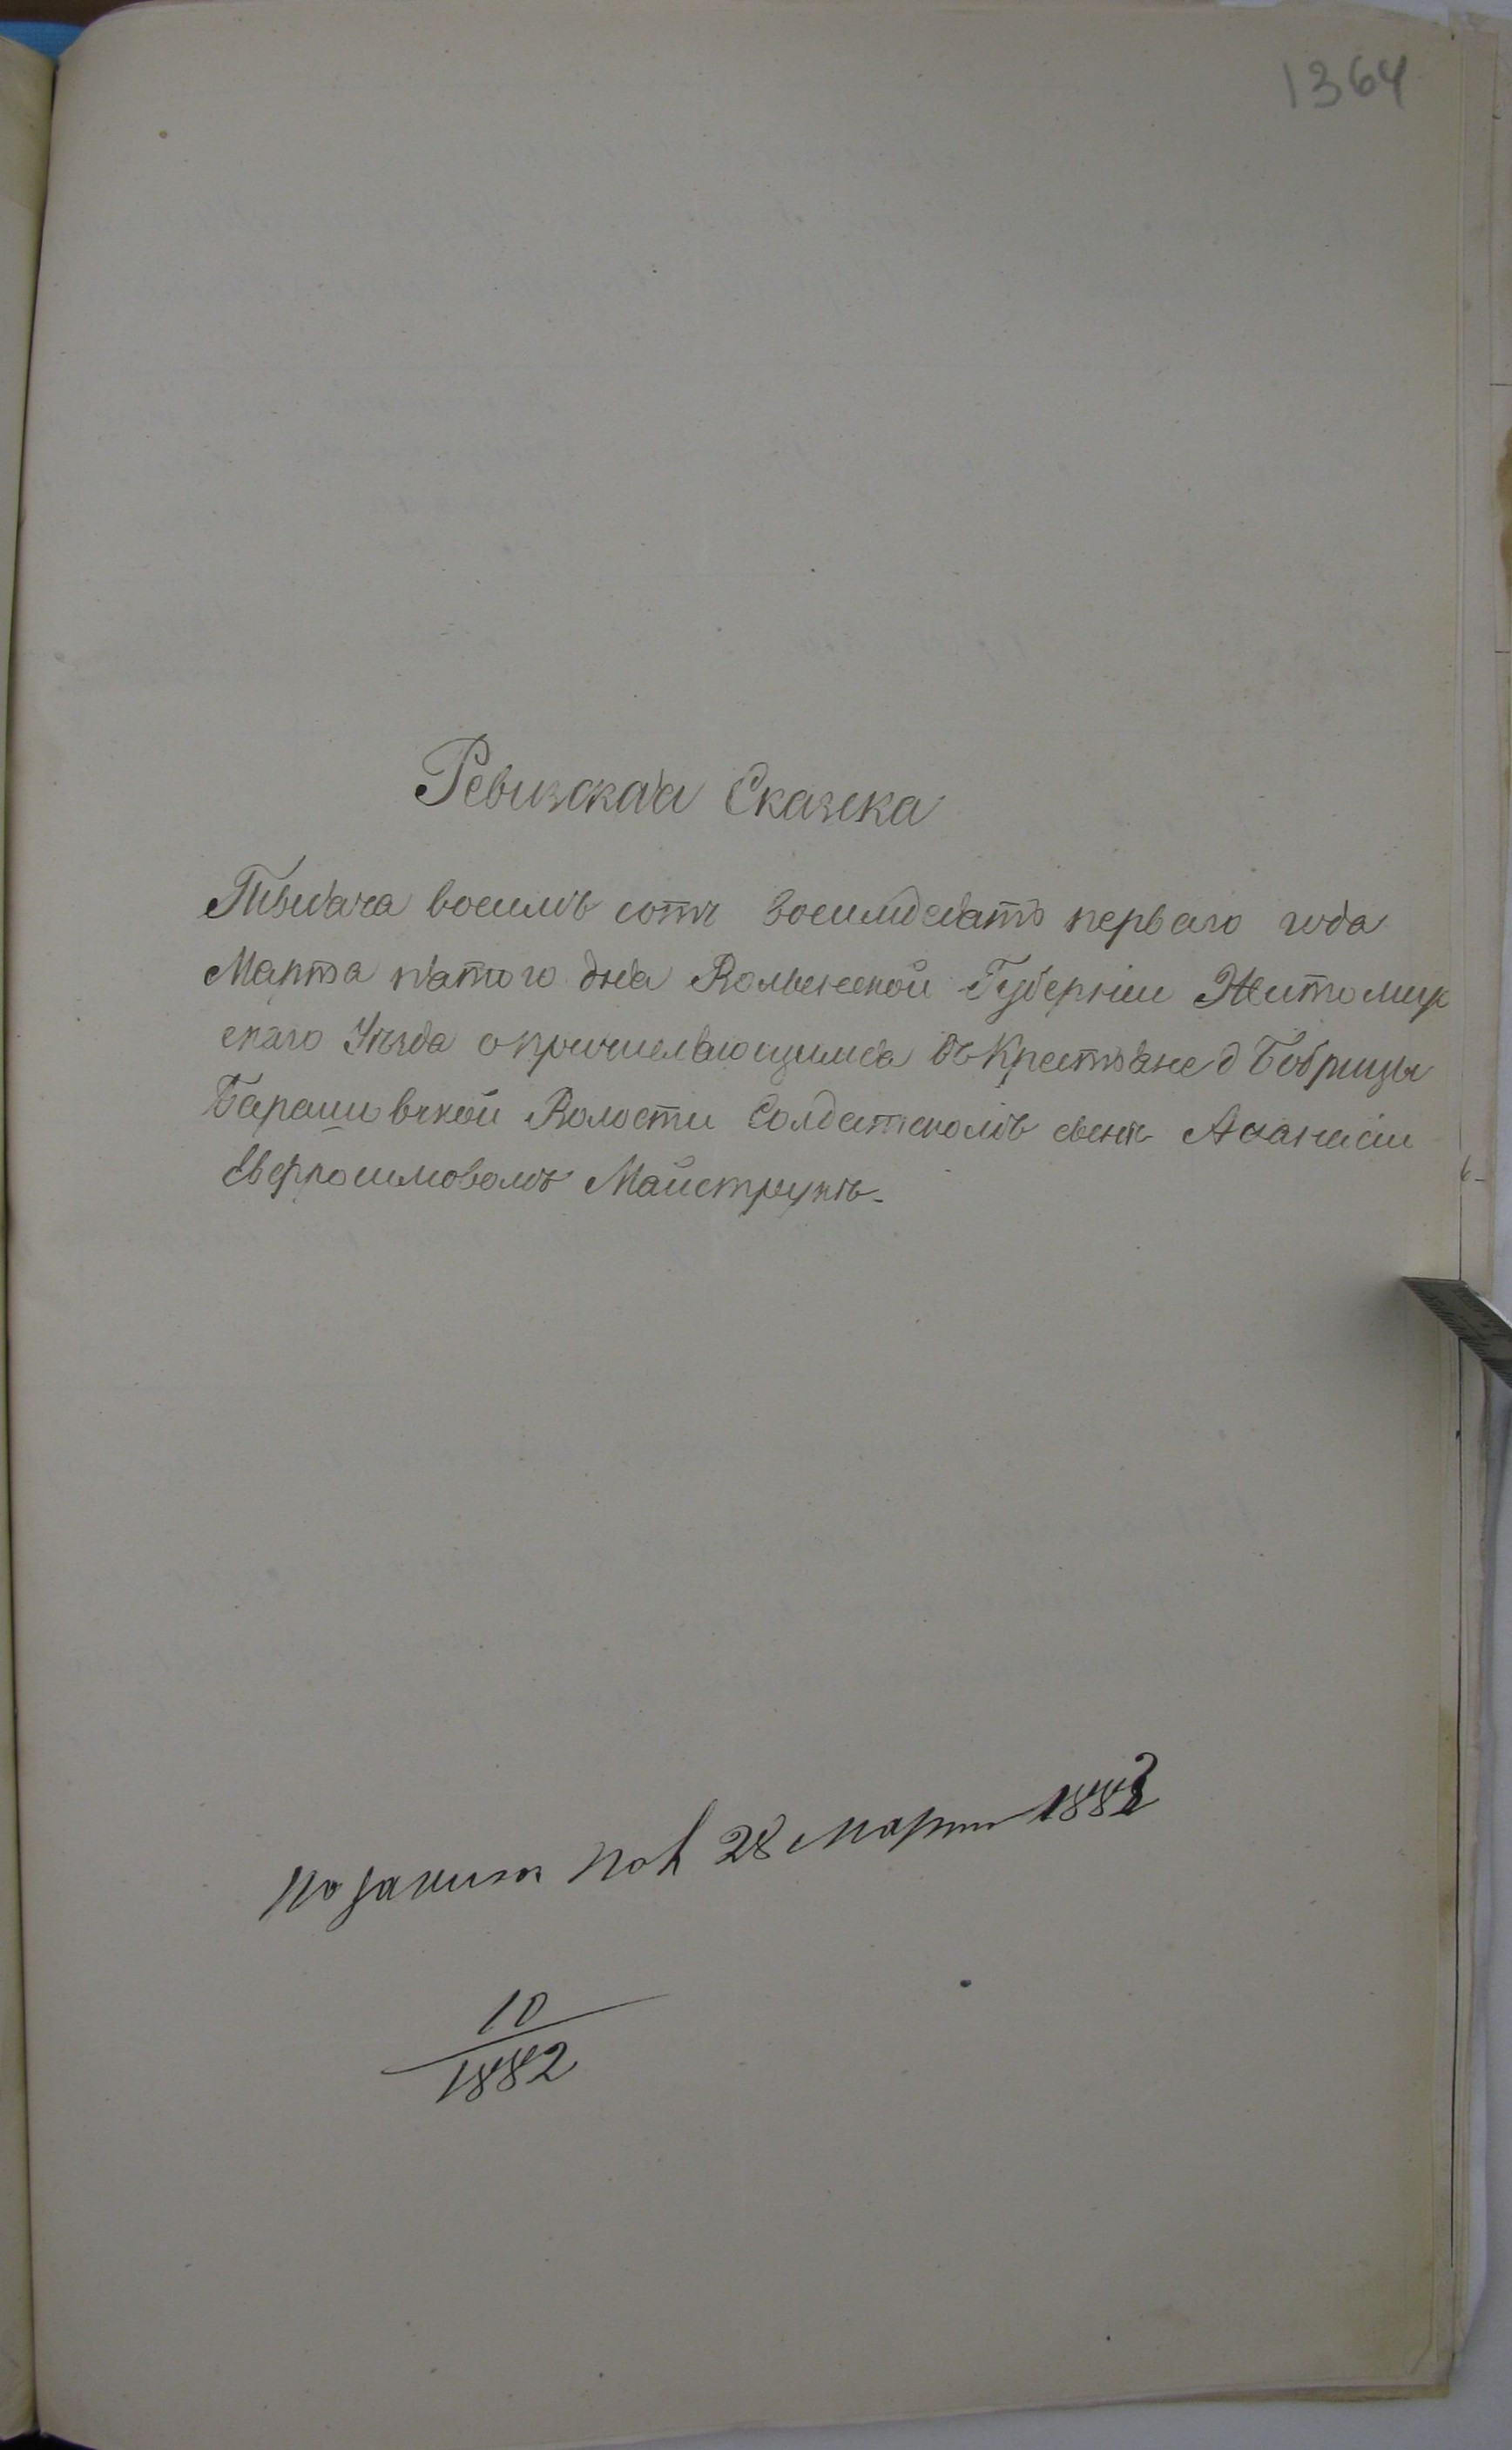 1364
Ревизская Сказка
Тысяча восемь сотъ восемдесятъ перваго года
Марта пятого дня Волынской Губерніи Житомир
скаго Уезда о причисляющимся въ Крестьяне д Бобрицы
Барашовской Волости Солдатскомъ сыне Аѳанасіи
Майструкъ
28 Марта 1882
10
1882